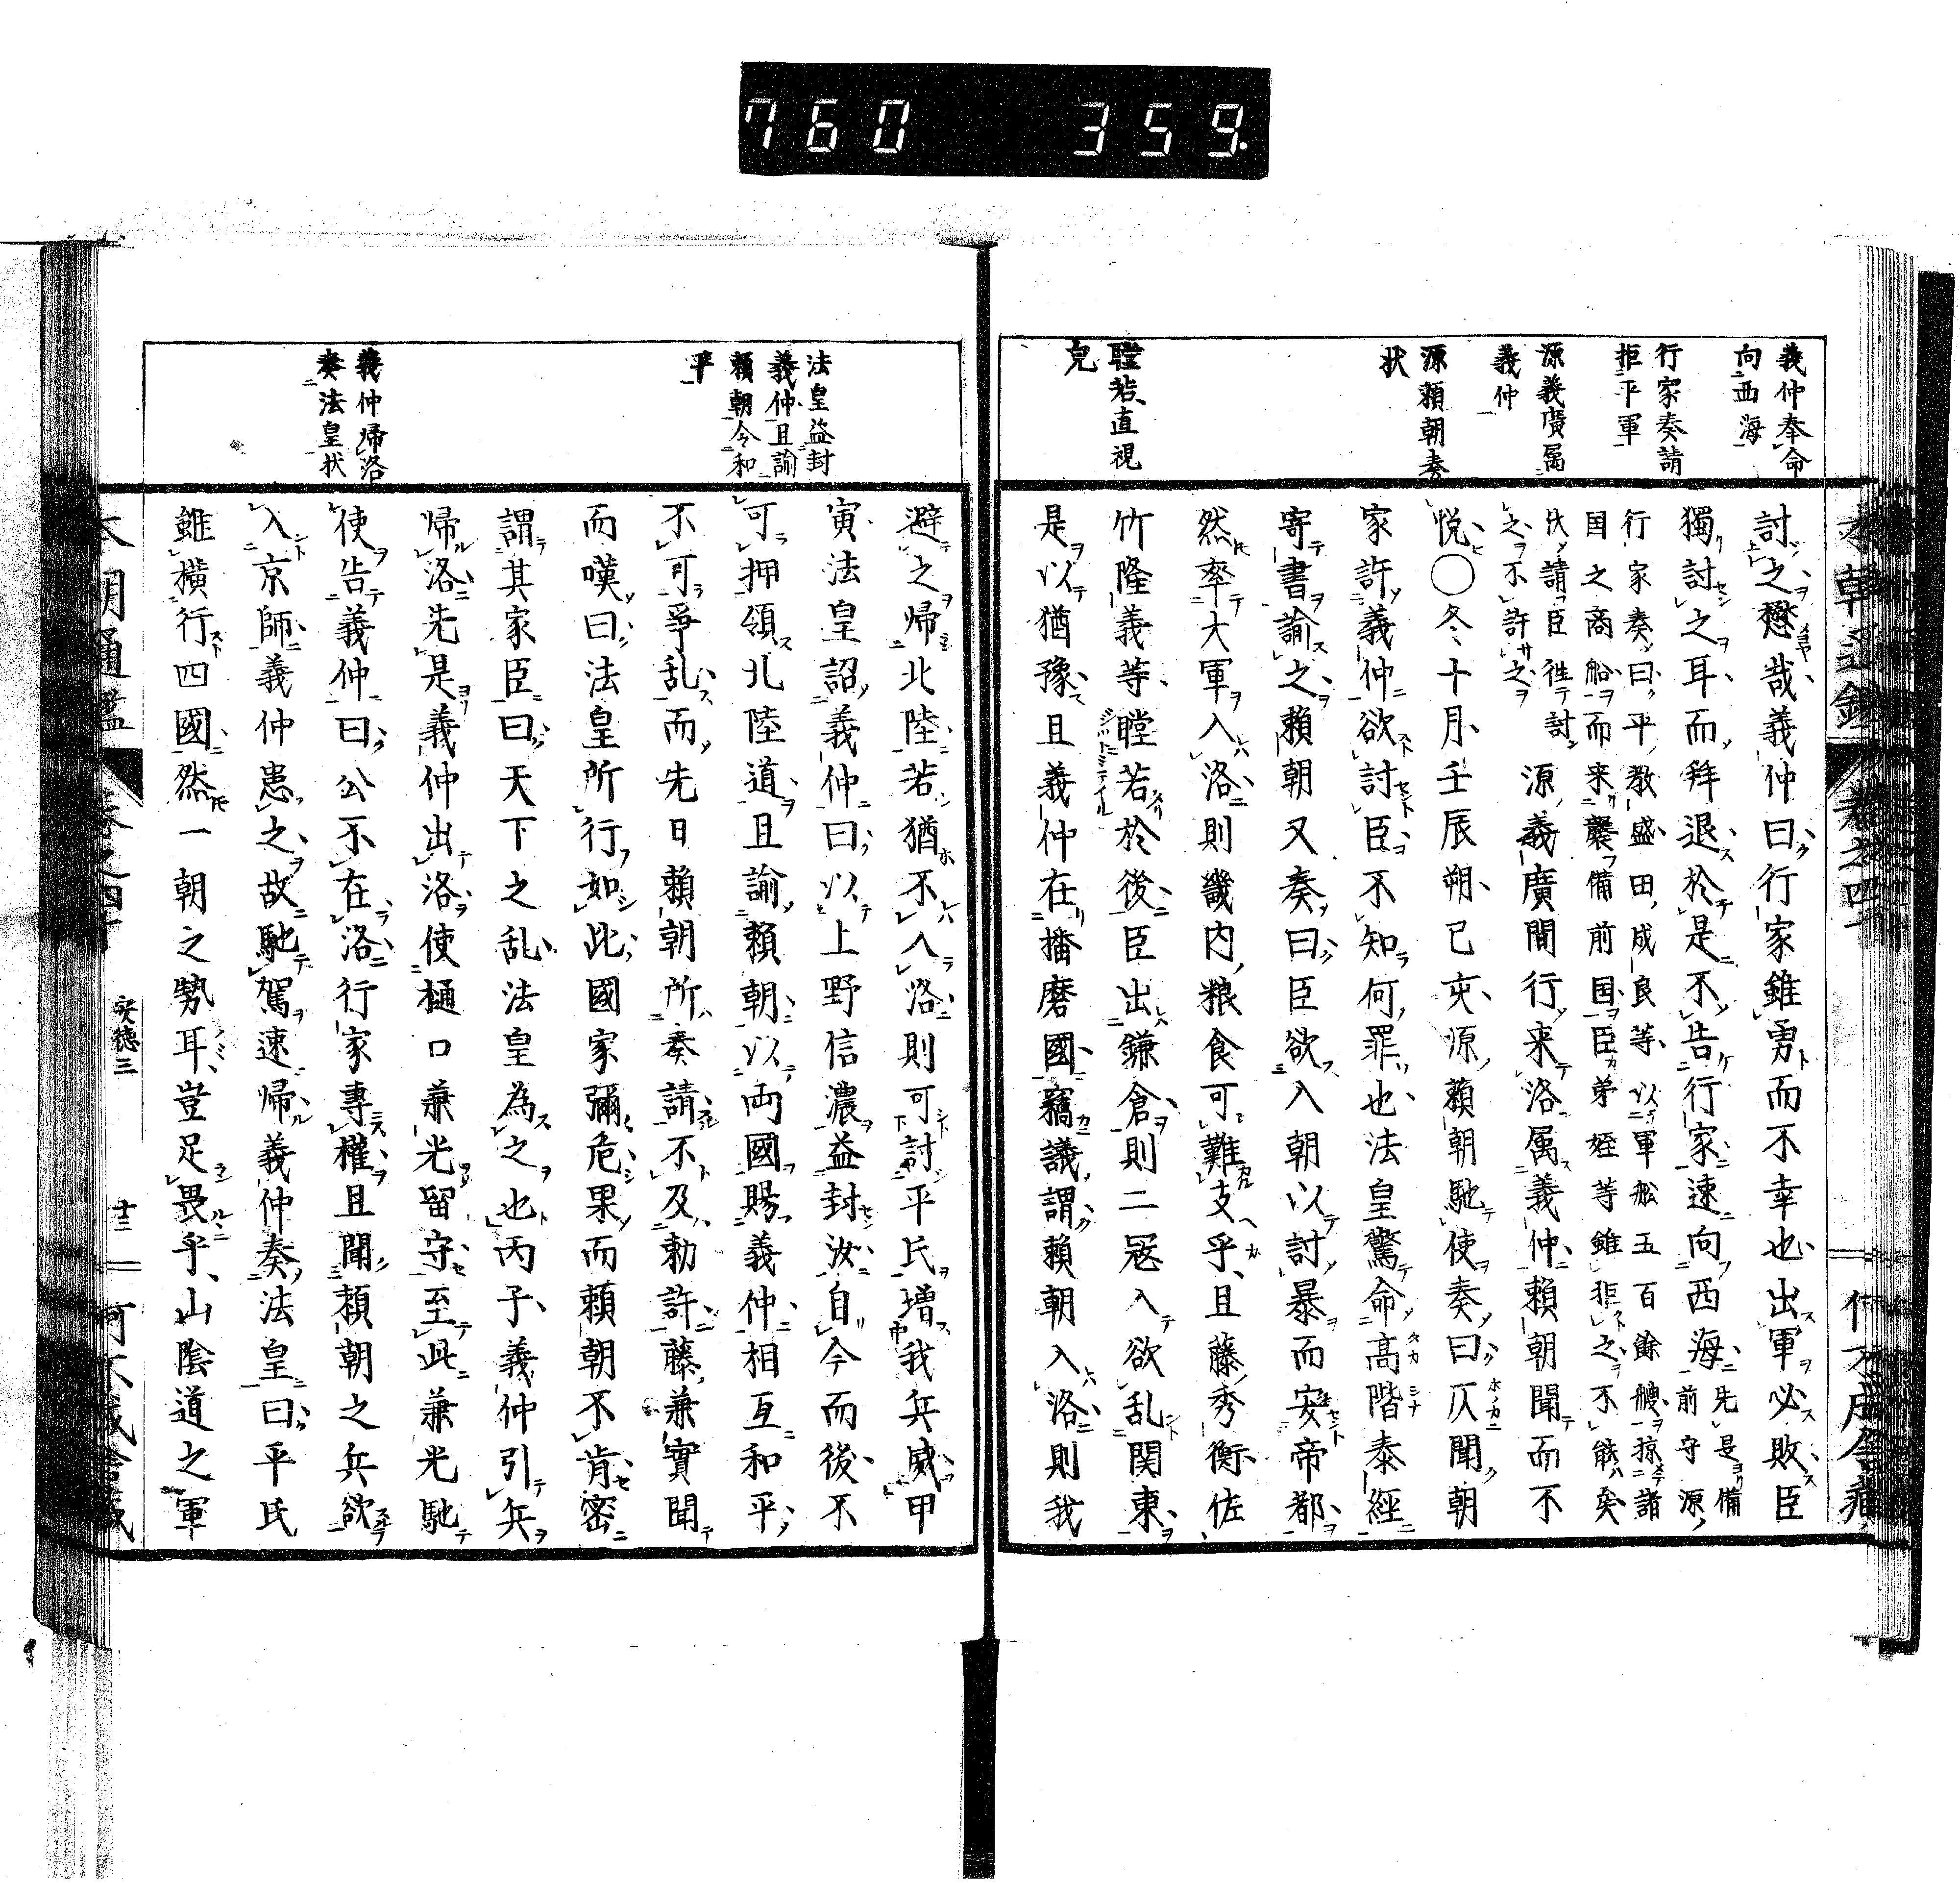 760 359.
義仲奉命
向西海
行家奏請
拒平軍
源義廣属
義仲
源頼朝奏
状
瞠若直視
皃
討之愸哉義仲曰行家雖勇而不幸也出軍必敗臣
獨討之耳而拜退於是不告行家速向西海先是備前守源
行家奏曰平教盛田成良等以軍舩五百餘艘掠諸
国之商船而来襲備前国臣弟姪等雖拒之不能矣
伏請臣徃討之不許之
源義廣間行来洛属義仲頼朝聞而不
悦〇冬十月壬辰朔己亥源頼朝馳使奏曰仄聞朝
家許義仲欲討臣不知何罪也法皇驚命高階泰經
寄書諭之頼朝又奏曰臣欲入朝以討暴而安帝都
然率大軍入洛則畿内粮食可難支乎且藤秀衡佐
竹隆義等瞠若於後臣出鎌倉則二冦入欲乱関東
是以猶豫且義仲在播磨國竊議謂頼朝入洛則我
法皇益封
義仲且諭
頼朝令和
平
義仲帰洛
奏法皇状
避之帰北陸若猶不入洛則可討平氏増我兵威甲
寅法皇詔義仲曰以上野信濃益封汝自今而後不
可押領北陸道且諭頼朝以両國賜義仲相互和平
不可爭乱而先日頼朝所奏請不及勅許藤兼實聞
而嘆曰法皇所行如此國家彌危果而頼朝不肯密
謂其家臣曰天下之乱法皇為之也丙子義仲引兵
帰洛先是義仲出洛使樋口兼光留守至此兼光馳
使告義仲曰公不在洛行家專權且聞頼朝之兵欲
入京師義仲患之故馳駕速帰義仲奏法皇曰平氏
雖横行四國然一朝之勢耳豈足畏乎山陰道之軍
本朝通鑑 卷之四十 安徳三 廿三